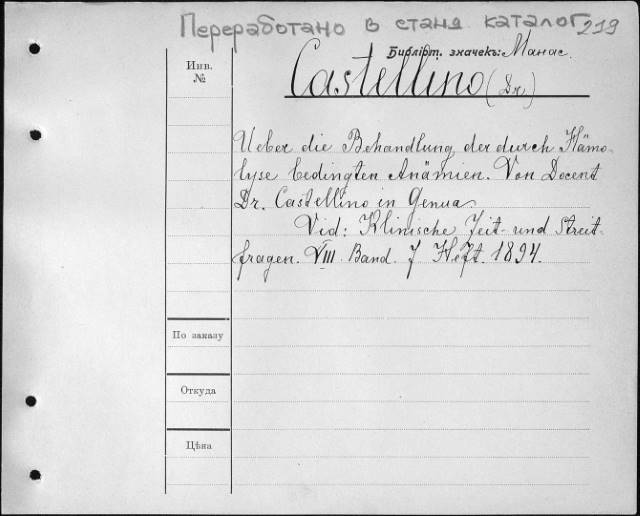 Переработано в станд каталог 219
Библіот. значекъ: Манас.
Инв.
№
Castellino (Dr.)
Ueber die Behandlung der durch Hämo-
lyse bedingten Anämien. Von Docent
Dr. Castellino in Genua.
Vid: Klinische Zeit- und Streit-
fragen. VIII Band. 7 Heft. 1894.
По заказу
Откуда
Цѣна